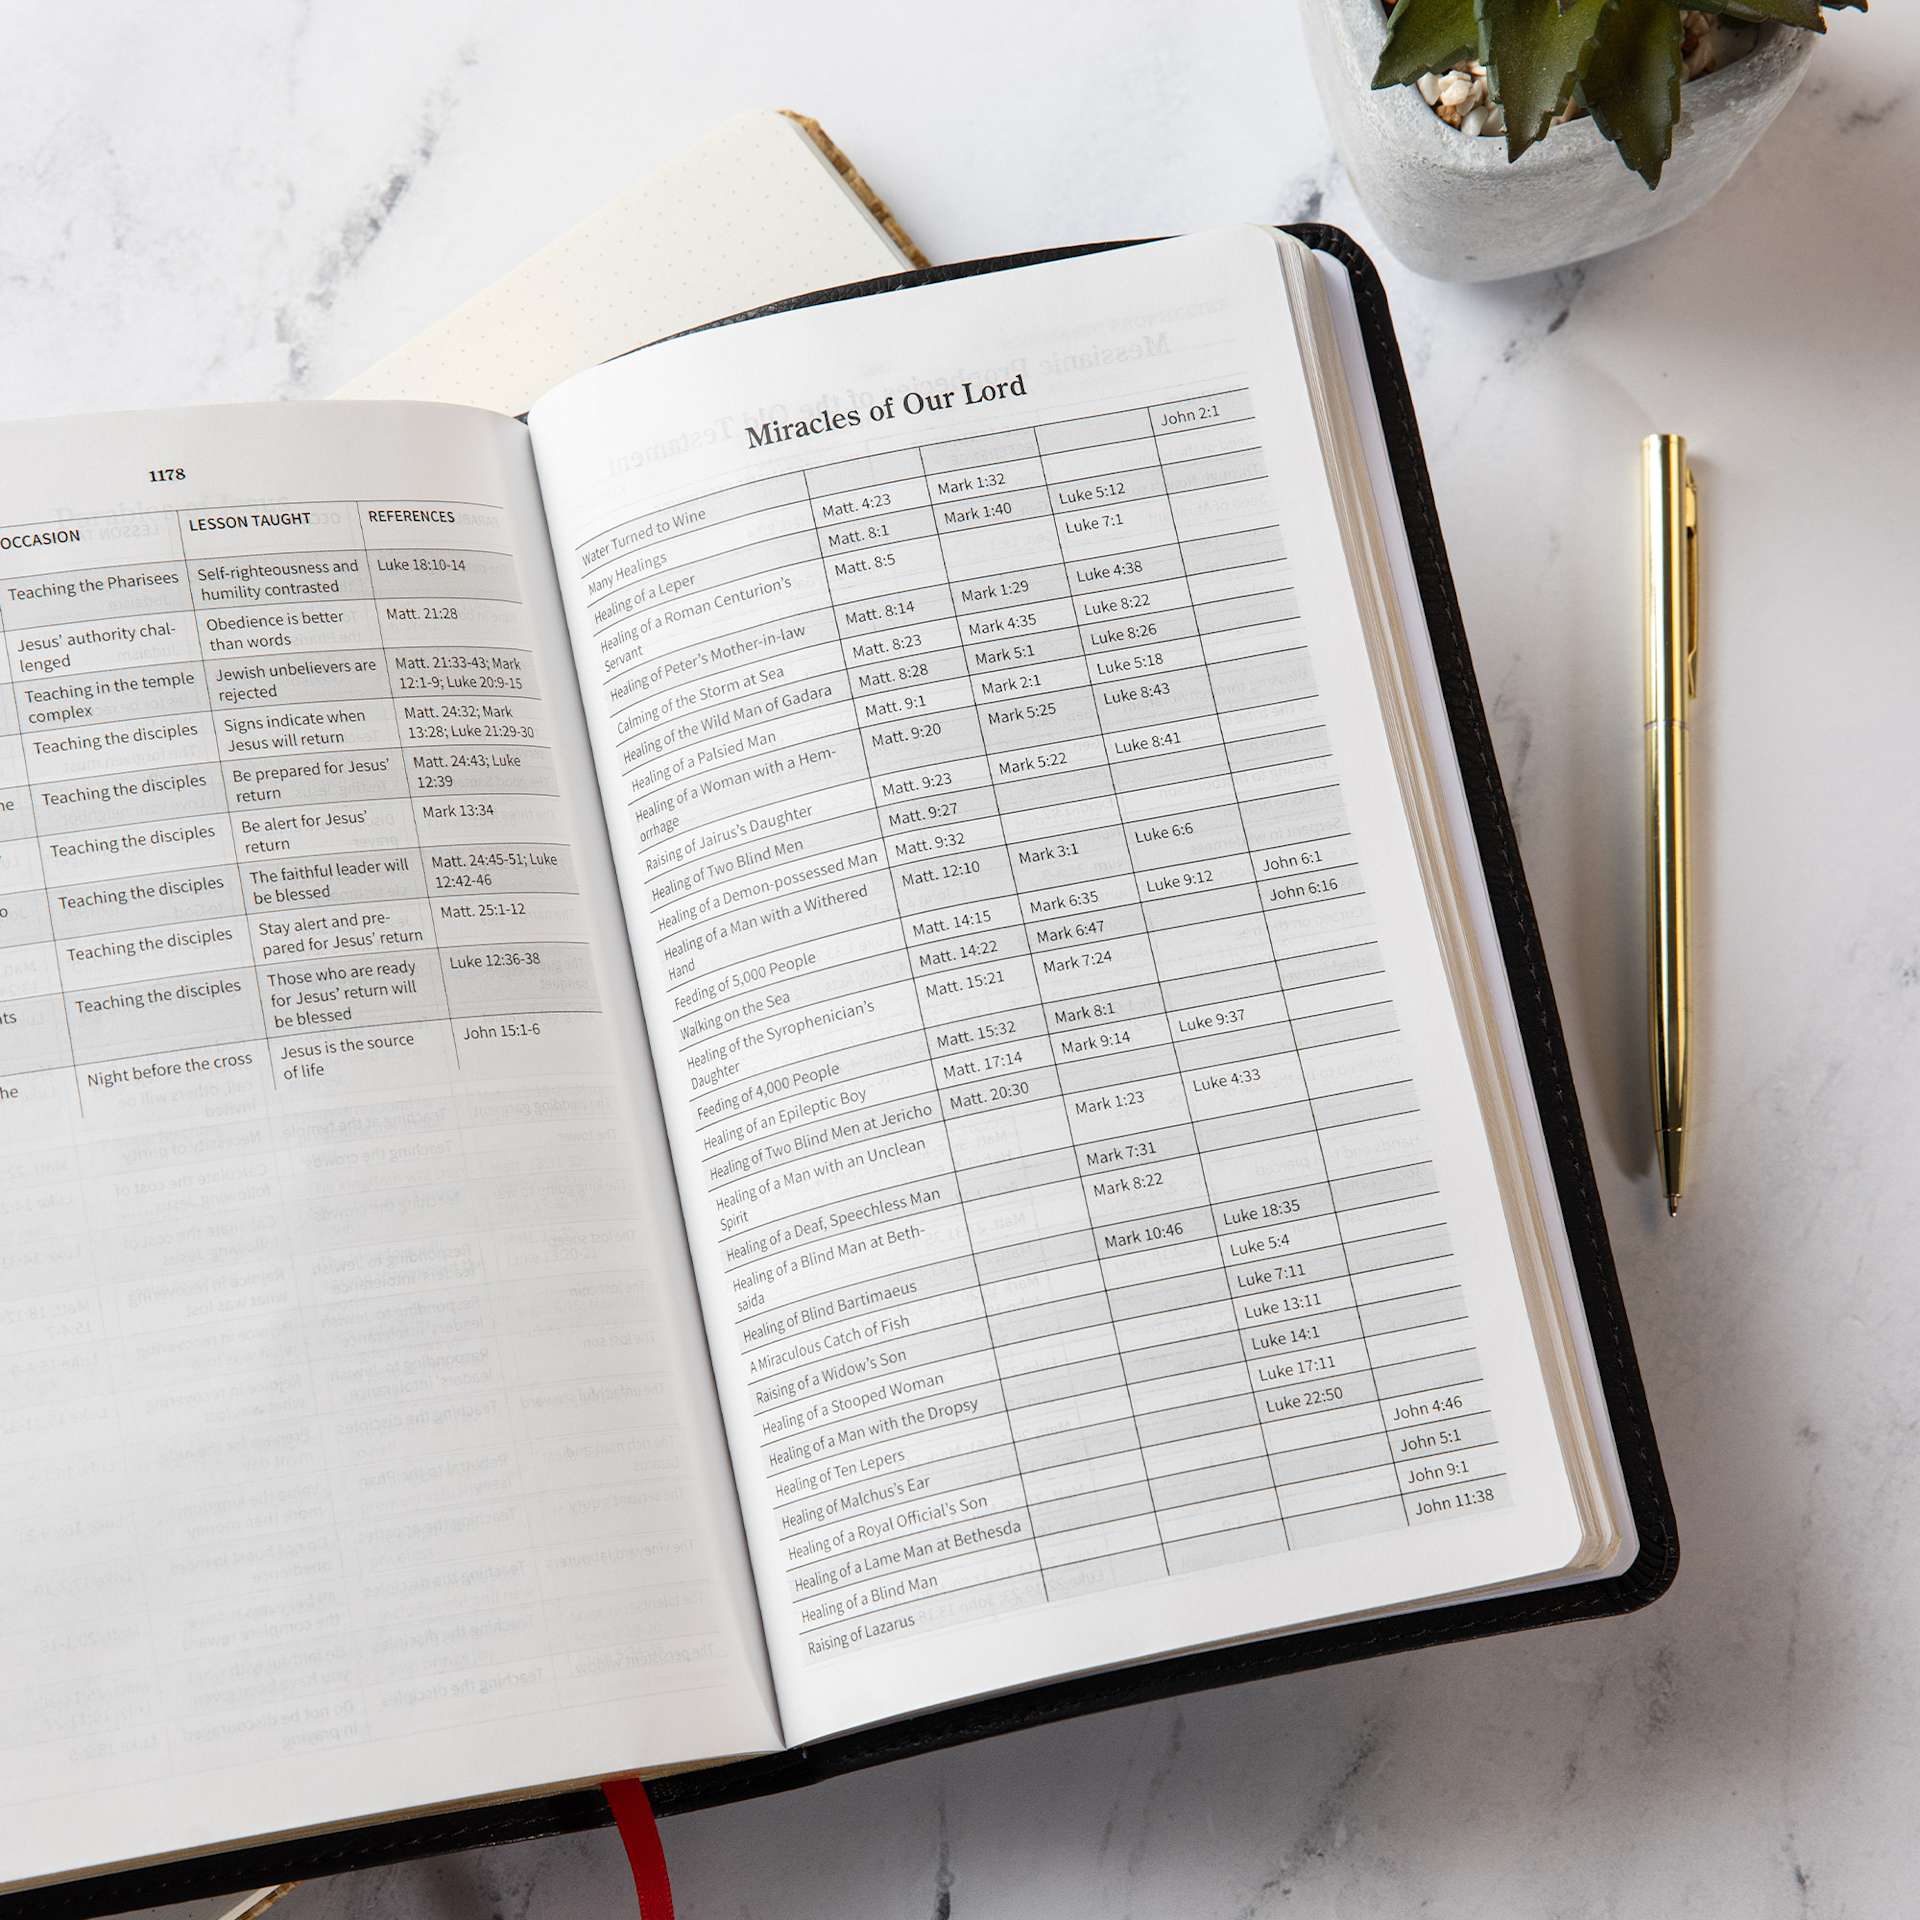 1178
OCCASION LESSON TAUGHT REFERENCES
Teaching the Pharisees Self-righteousness and Luke 18:10-14
humility contrasted
Jesus' authority chal- Obedience is better Matt. 21:28
lenged than words
Teaching in the temple Jewish unbelievers are Matt. 21:33-43; Mark
complex rejected 12:1-9; Luke 20:9-15
Teaching the disciples Signs indicate when Matt. 24:32; Mark
Jesus will return 13:28; Luke 21:29-30
Teaching the disciples Be prepared for Jesus' Matt. 24:43; Luke
return 12:39
Teaching the disciples Be alert for Jesus' Mark 13:34
return
Teaching the disciples The faithful leader will Matt. 24:45-51; Luke
be blessed 12:42-46
Teaching the disciples Stay alert and pre- Matt. 25:1-12
pared for Jesus' return
Teaching the disciples Those who are ready Luke 12:36-38
for Jesus' return will
be blessed
Night before the cross Jesus is the source John 15:1-6
of life
Miracles of Our Lord
Water Turned to Wine John 2:1
Many Healings Matt. 4:23 Mark 1:32
Healing of a Leper Matt. 8:1 Mark 1:40 Luke 5:12
Healing of a Roman Centurion's Matt. 8:5 Luke 7:1
Servant
Healing of Peter's Mother-in-law Matt. 8:14 Mark 1:29 Luke 4:38
Calming of the Storm at Sea Matt. 8:23 Mark 4:35 Luke 8:22
Healing of the Wild Man of Gadara Matt. 8:28 Mark 5:1 Luke 8:26
Healing of a Palsied Man Matt. 9:1 Mark 2:1 Luke 5:18
Healing of a Woman with a Hem- Matt. 9:20 Mark 5:25 Luke 8:43
orrhage
Raising of Jairus's Daughter Matt. 9:23 Mark 5:22 Luke 8:41
Healing of Two Blind Men Matt. 9:27
Healing of a Demon-possessed Man Matt. 9:32
Healing of a Man with a Withered Matt. 12:10 Mark 3:1 Luke 6:6
Hand
Feeding of 5,000 People Matt. 14:15 Mark 6:35 Luke 9:12 John 6:1
Walking on the Sea Matt. 14:22 Mark 6:47 John 6:16
Healing of the Syrophenician's Matt. 15:21 Mark 7:24
Daughter
Feeding of 4,000 People Matt. 15:32 Mark 8:1
Healing of an Epileptic Boy Matt. 17:14 Mark 9:14 Luke 9:37
Healing of Two Blind Men at Jericho Matt. 20:30
Healing of a Man with an Unclean Mark 1:23 Luke 4:33
Spirit
Healing of a Deaf, Speechless Man Mark 7:31
Healing of a Blind Man at Beth- Mark 8:22
saida
Healing of Blind Bartimaeus Mark 10:46 Luke 18:35
A Miraculous Catch of Fish Luke 5:4
Raising of a Widow's Son Luke 7:11
Healing of a Stooped Woman Luke 13:11
Healing of a Man with the Dropsy Luke 14:1
Healing of Ten Lepers Luke 17:11
Healing of Malchus's Ear Luke 22:50
Healing of a Royal Official's Son John 4:46
Healing of a Lame Man at Bethesda John 5:1
Healing of a Blind Man John 9:1
Raising of Lazarus John 11:38